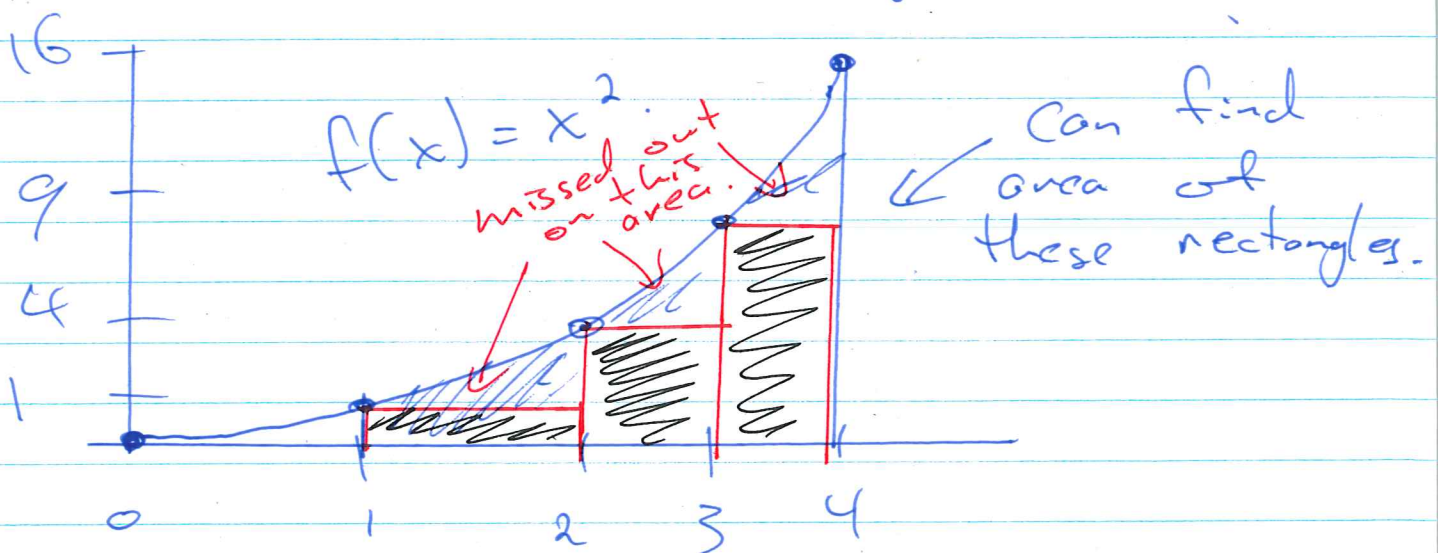 16
f(x) = x².
9
4
1
missed out
on this
area.
Can find
area of
these rectangles.
0 1 2 3 4